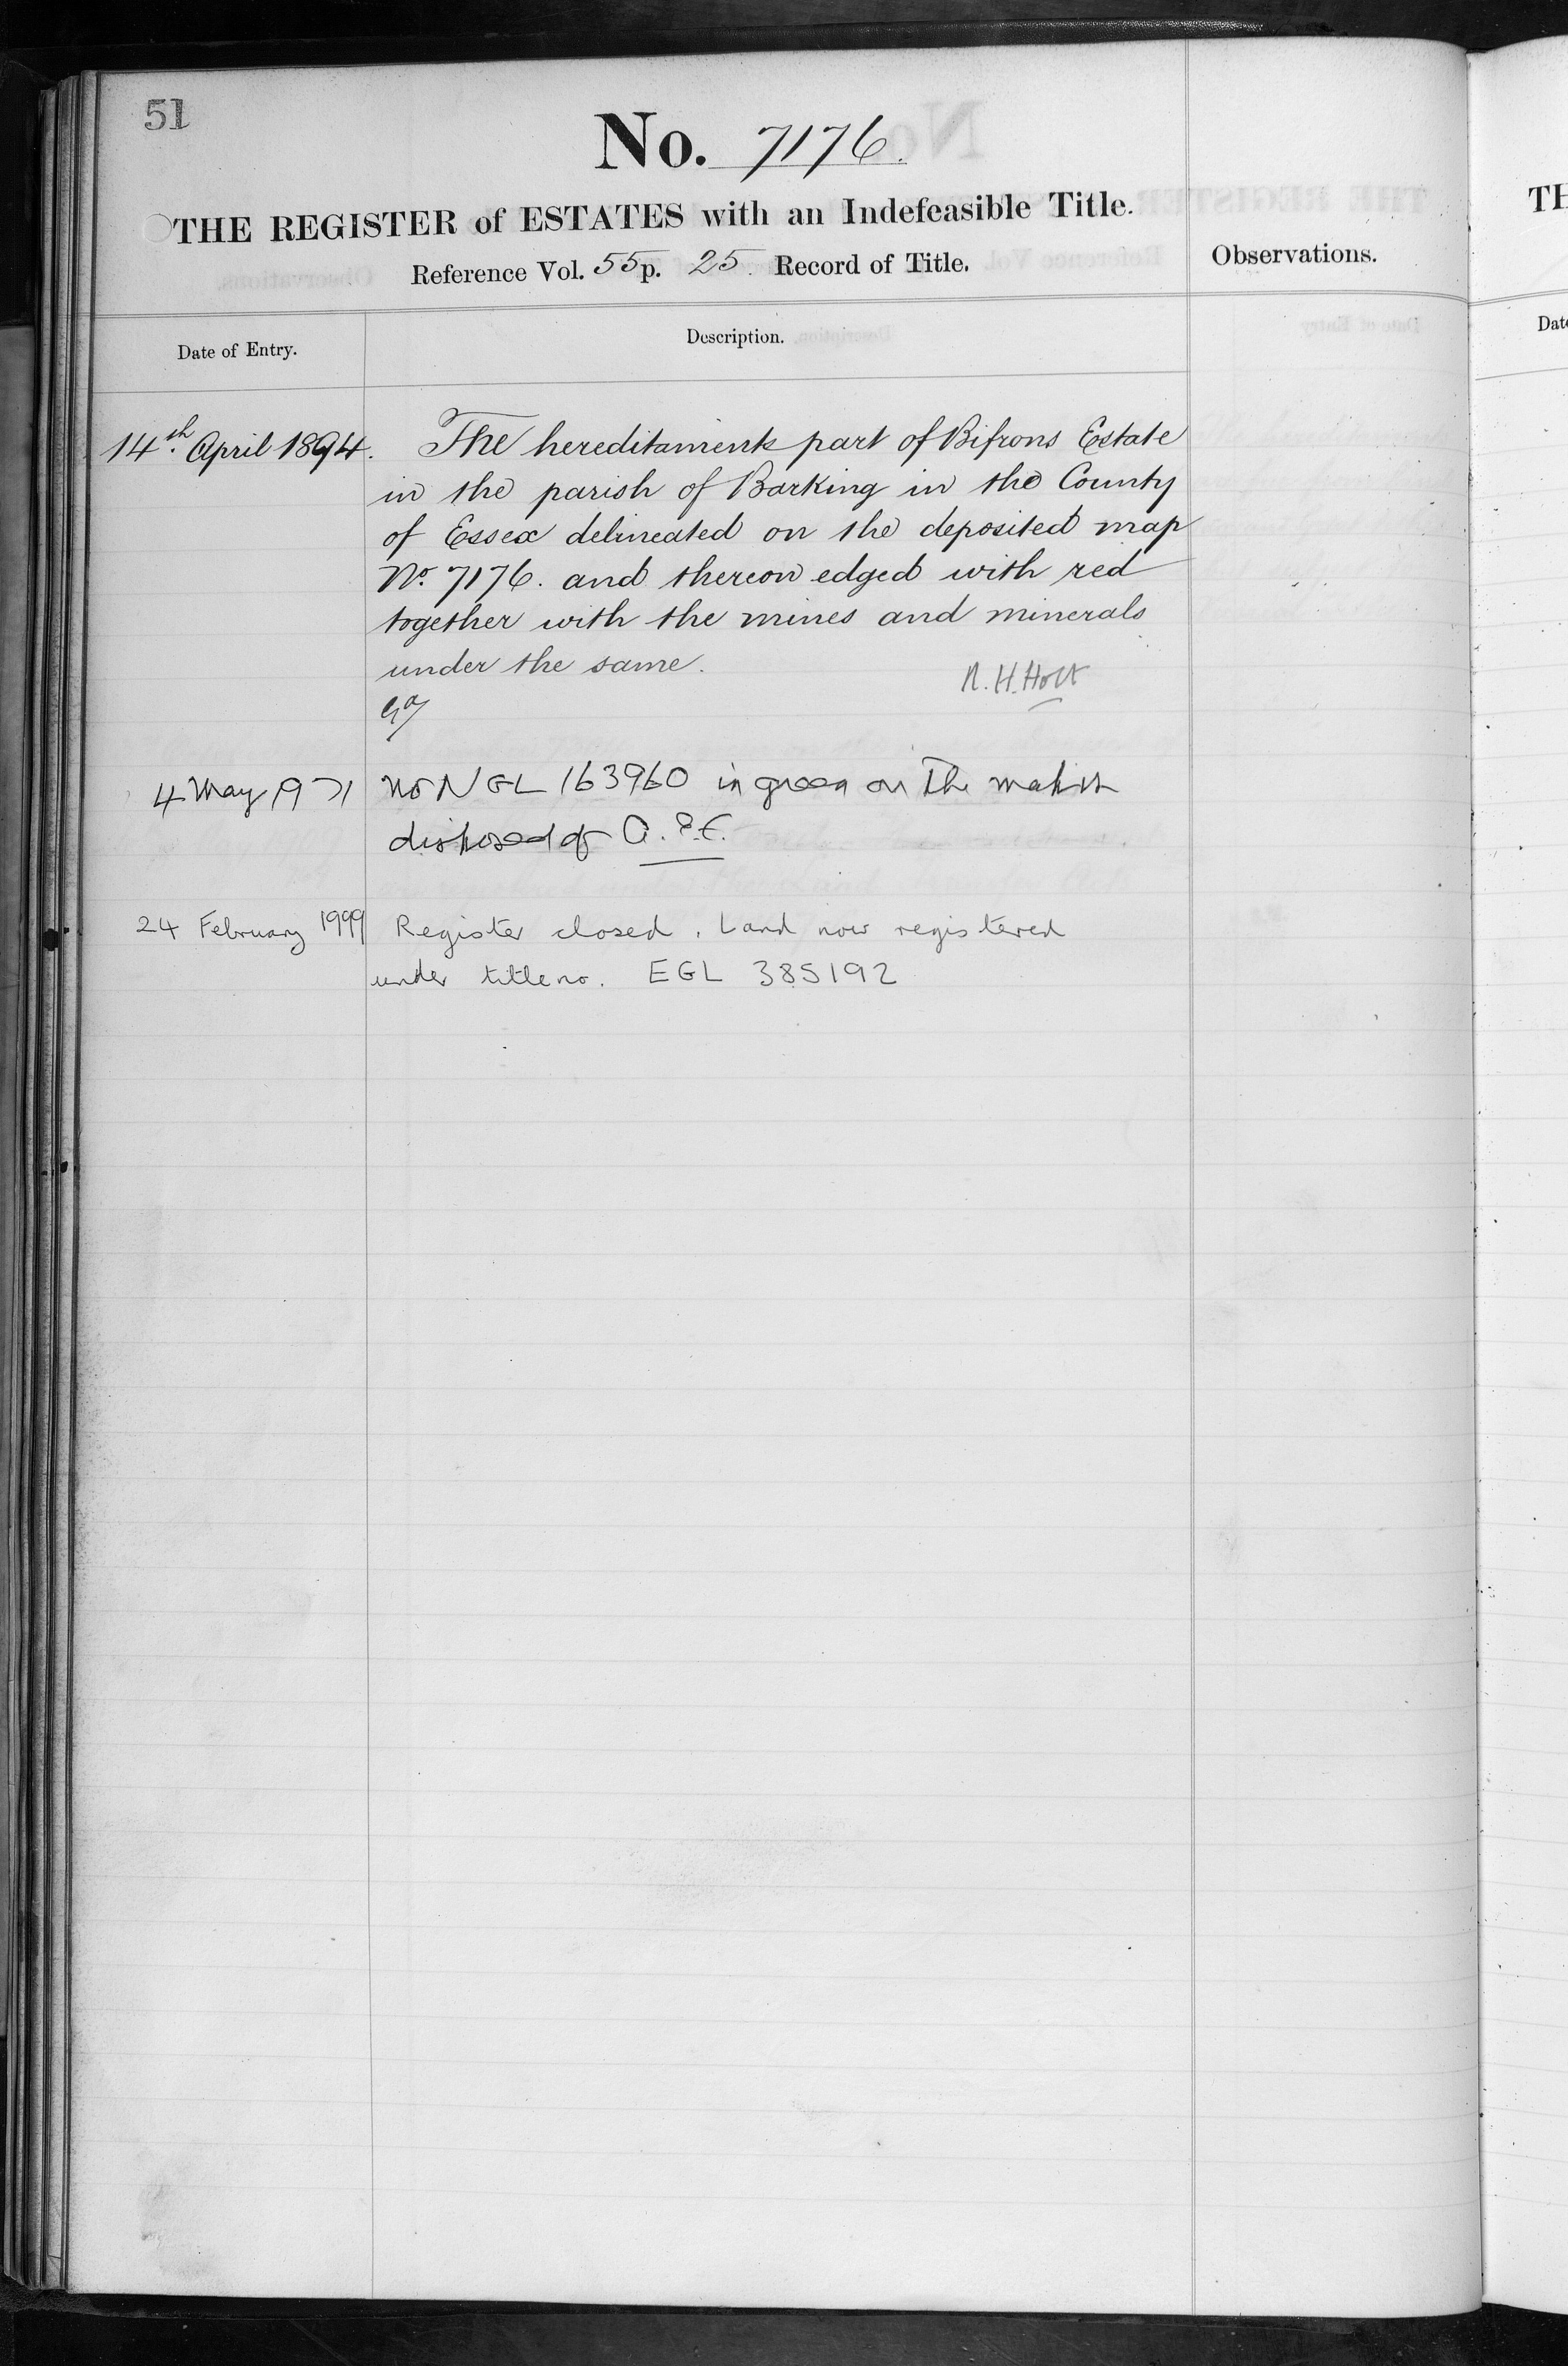 51
No. 7176.
THE REGISTER of ESTATES with an Indefeasible Title.
Reference Vol. 55 p. 25. Record of Title.
Observations.
Date of Entry.
Description.
14th. April 1894. The hereditaments part of Bifrons Estate
in the parish of Barking in the County
of Essex delineated on the deposited map
No. 7176. and thereon edged with red
together with the mines and minerals
under the same.
R. H. Holt
4 May 1971 No NGL 163960 in green on the map is
disposed of
24 February 1999 Register closed. Land now registered
under title no. EGL 385192
TH
Dat